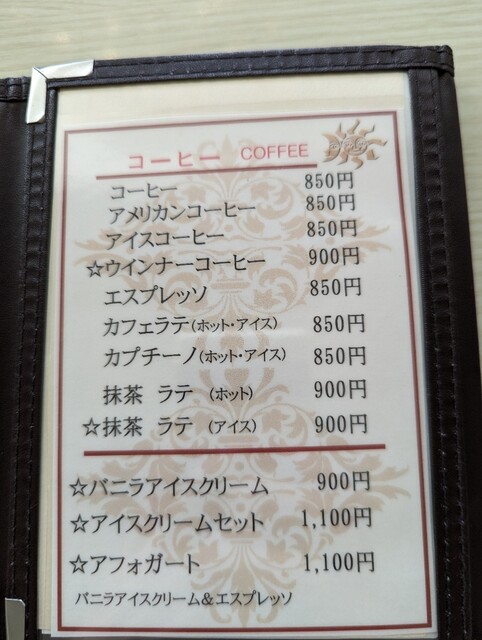 コーヒー COFFEE
コーヒー 850円
アメリカンコーヒー 850円
アイスコーヒー 850円
☆ウインナーコーヒー 900円
エスプレッソ 850円
カフェラテ(ホット・アイス) 850円
カプチーノ(ホット・アイス) 850円
抹茶 ラテ (ホット) 900円
☆抹茶 ラテ (アイス) 900円
☆バニラアイスクリーム 900円
☆アイスクリームセット 1,100円
☆アフォガート 1,100円
バニラアイスクリーム&エスプレッソ